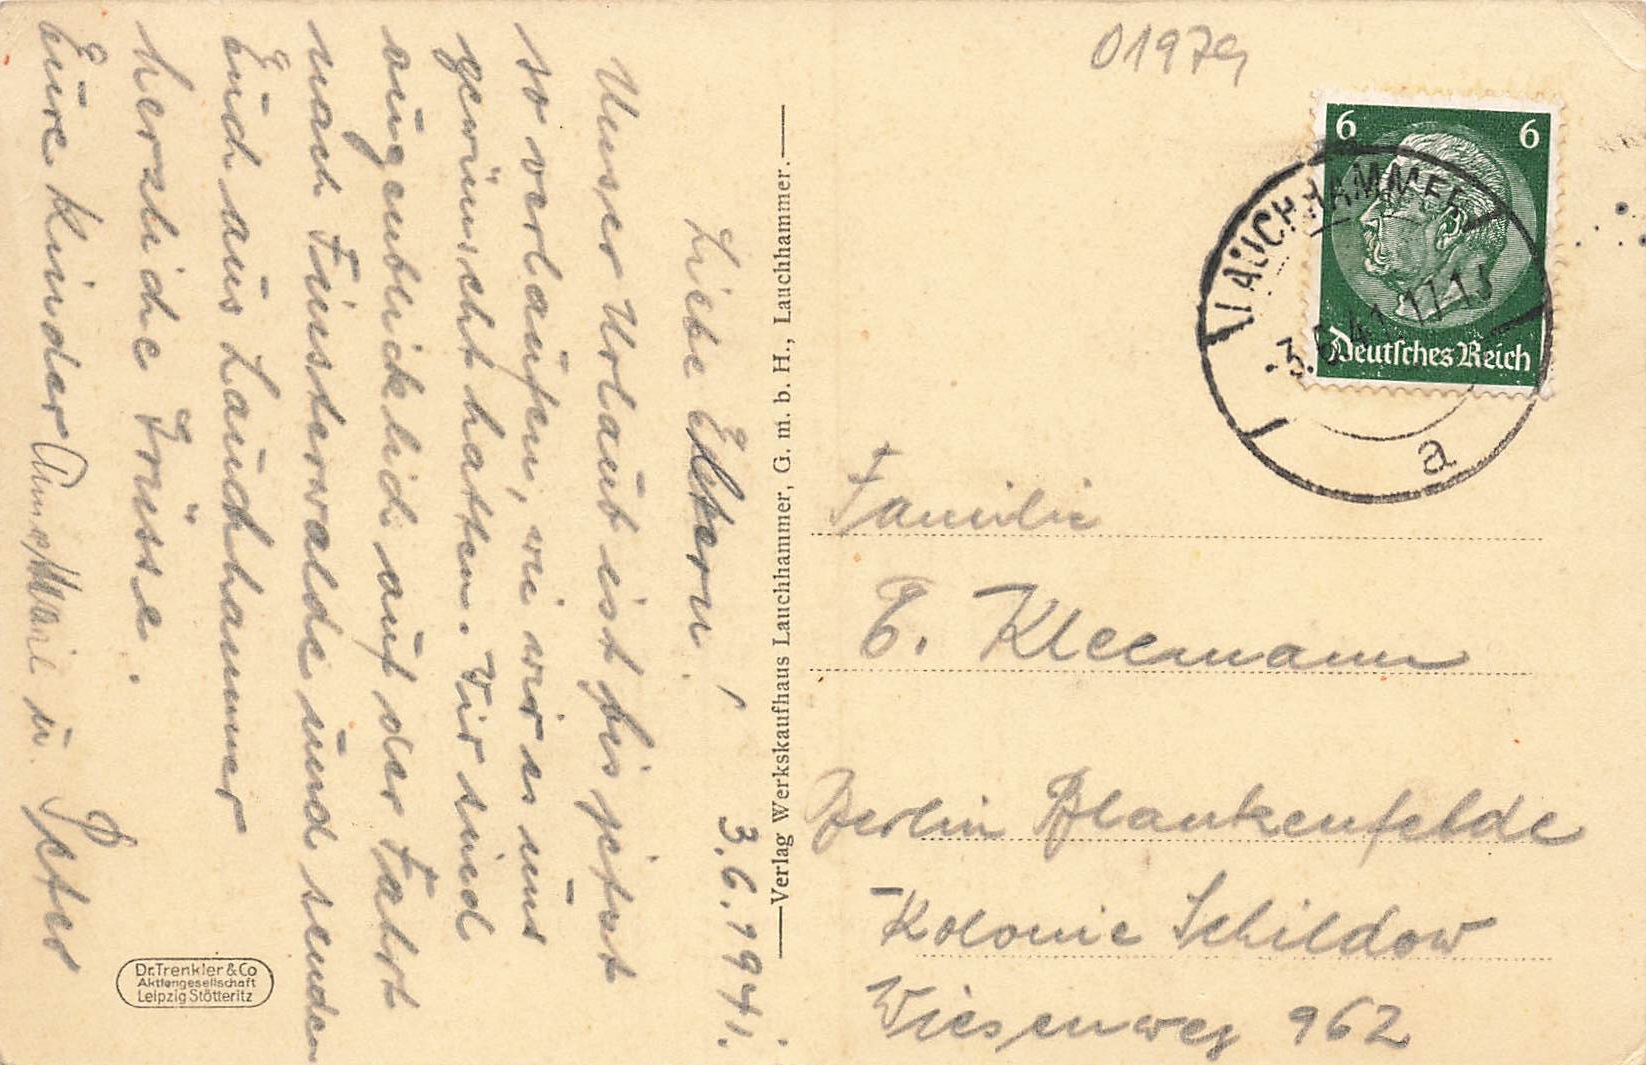 3.6.1941.
Liebe Eltern!
Unser Urlaub ist bis jetzt
so verlaufen, wie wir es uns
gewünscht hatten. Wir sind
augenblicklich auf der Fahrt
nach Finsterwalde und senden
Euch aus Lauchhammer
herzliche Grüsse.
Eure Kinder AnneMarie u. Peter
Dr. Trenkler & Co
Aktiengesellschaft
Leipzig Stötteritz
Verlag Werkskaufhaus Lauchhammer, G. m. b. H., Lauchhammer.
01979
6 6
Deutsches Reich
LAUCHHAMMER
-3.6.41 17-18
a
Familie
E. Kleemann
Berlin Blankenfelde
Kolonie Schildow
Wiesenweg 962